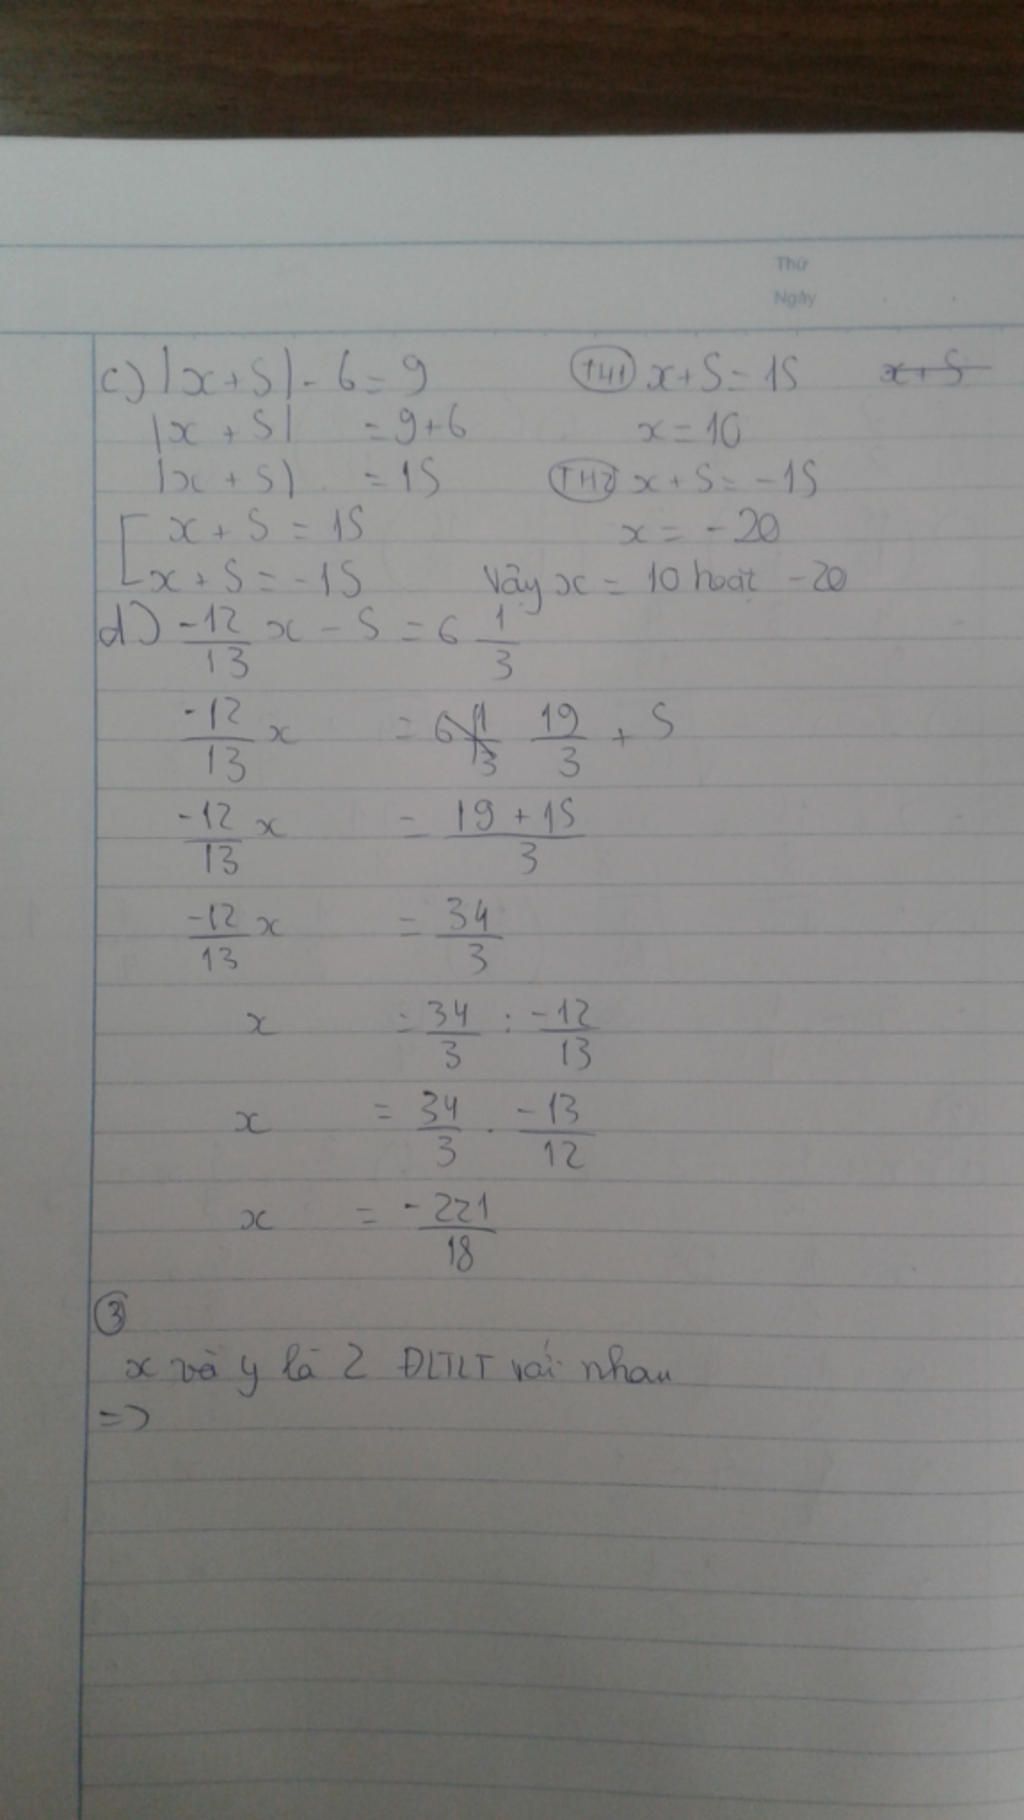 Thứ
Ngày
c) |x+5| - 6 = 9
|x + 5| = 9+6
|x + 5| = 15
x + 5 = 15
x + 5 = -15
TH1 x+5 = 15
x = 10
TH2 x + 5 = -15
x = -20
Vậy x = 10 hoặt -20
d) -12/13 x - 5 = 6 1/3
-12/13 x = 19/3 + 5
-12/13 x = 19 + 15/3
-12/13 x = 34/3
x = 34/3 : -12/13
x = 34/3 . -13/12
x = -221/18
3
x và y là 2 ĐLTLT với nhau
=>